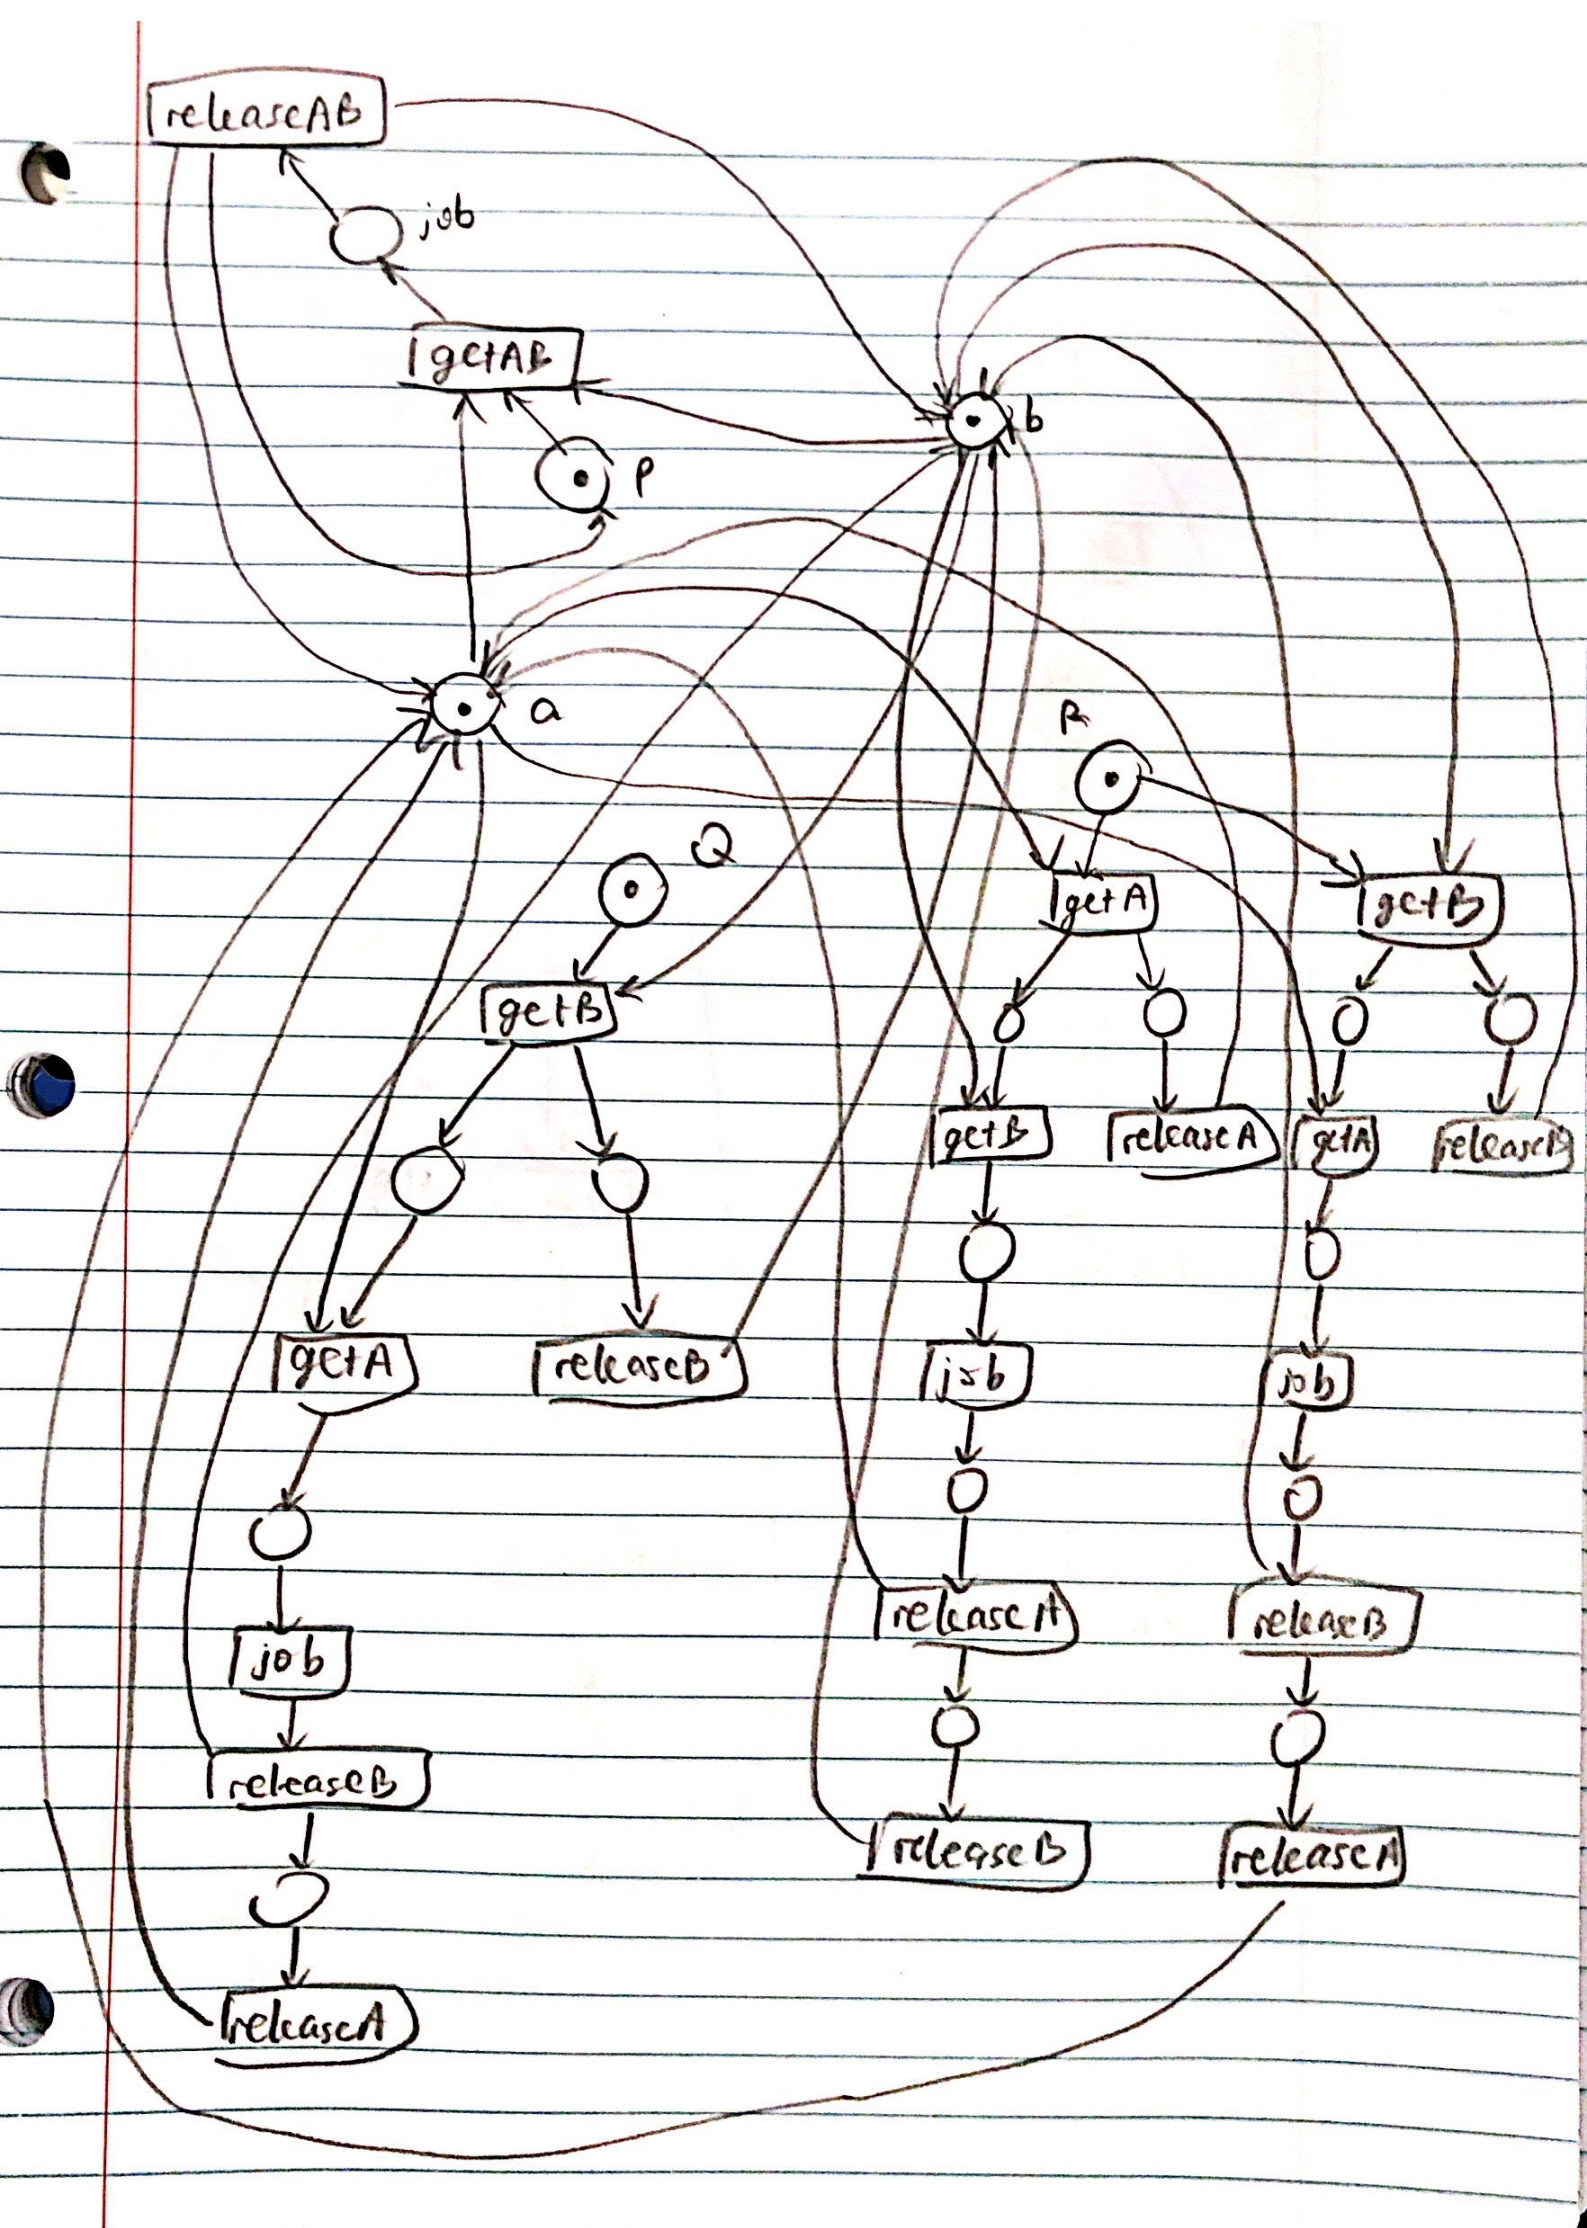 releaseAB
job
getAB
b
P
a
R
Q
getA
getB
getB
getB
releaseA
getA
releaseB
getA
releaseB
job
job
releaseA
releaseB
job
releaseB
releaseB
releaseA
releaseA